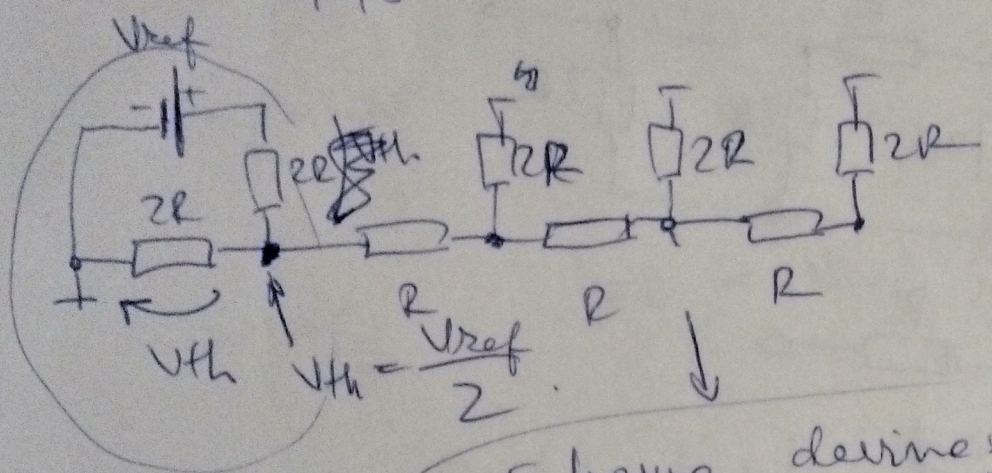 Vref
- +
2R 2R 2R 2R 2R
R R R
Vth Vth = Vref / 2 .
devine